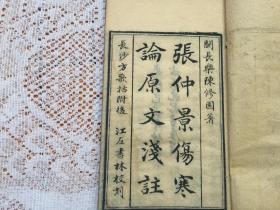 閩長樂陳修園著
張仲景傷寒
論原文淺註
長沙方歌括附後
江左書林校刻